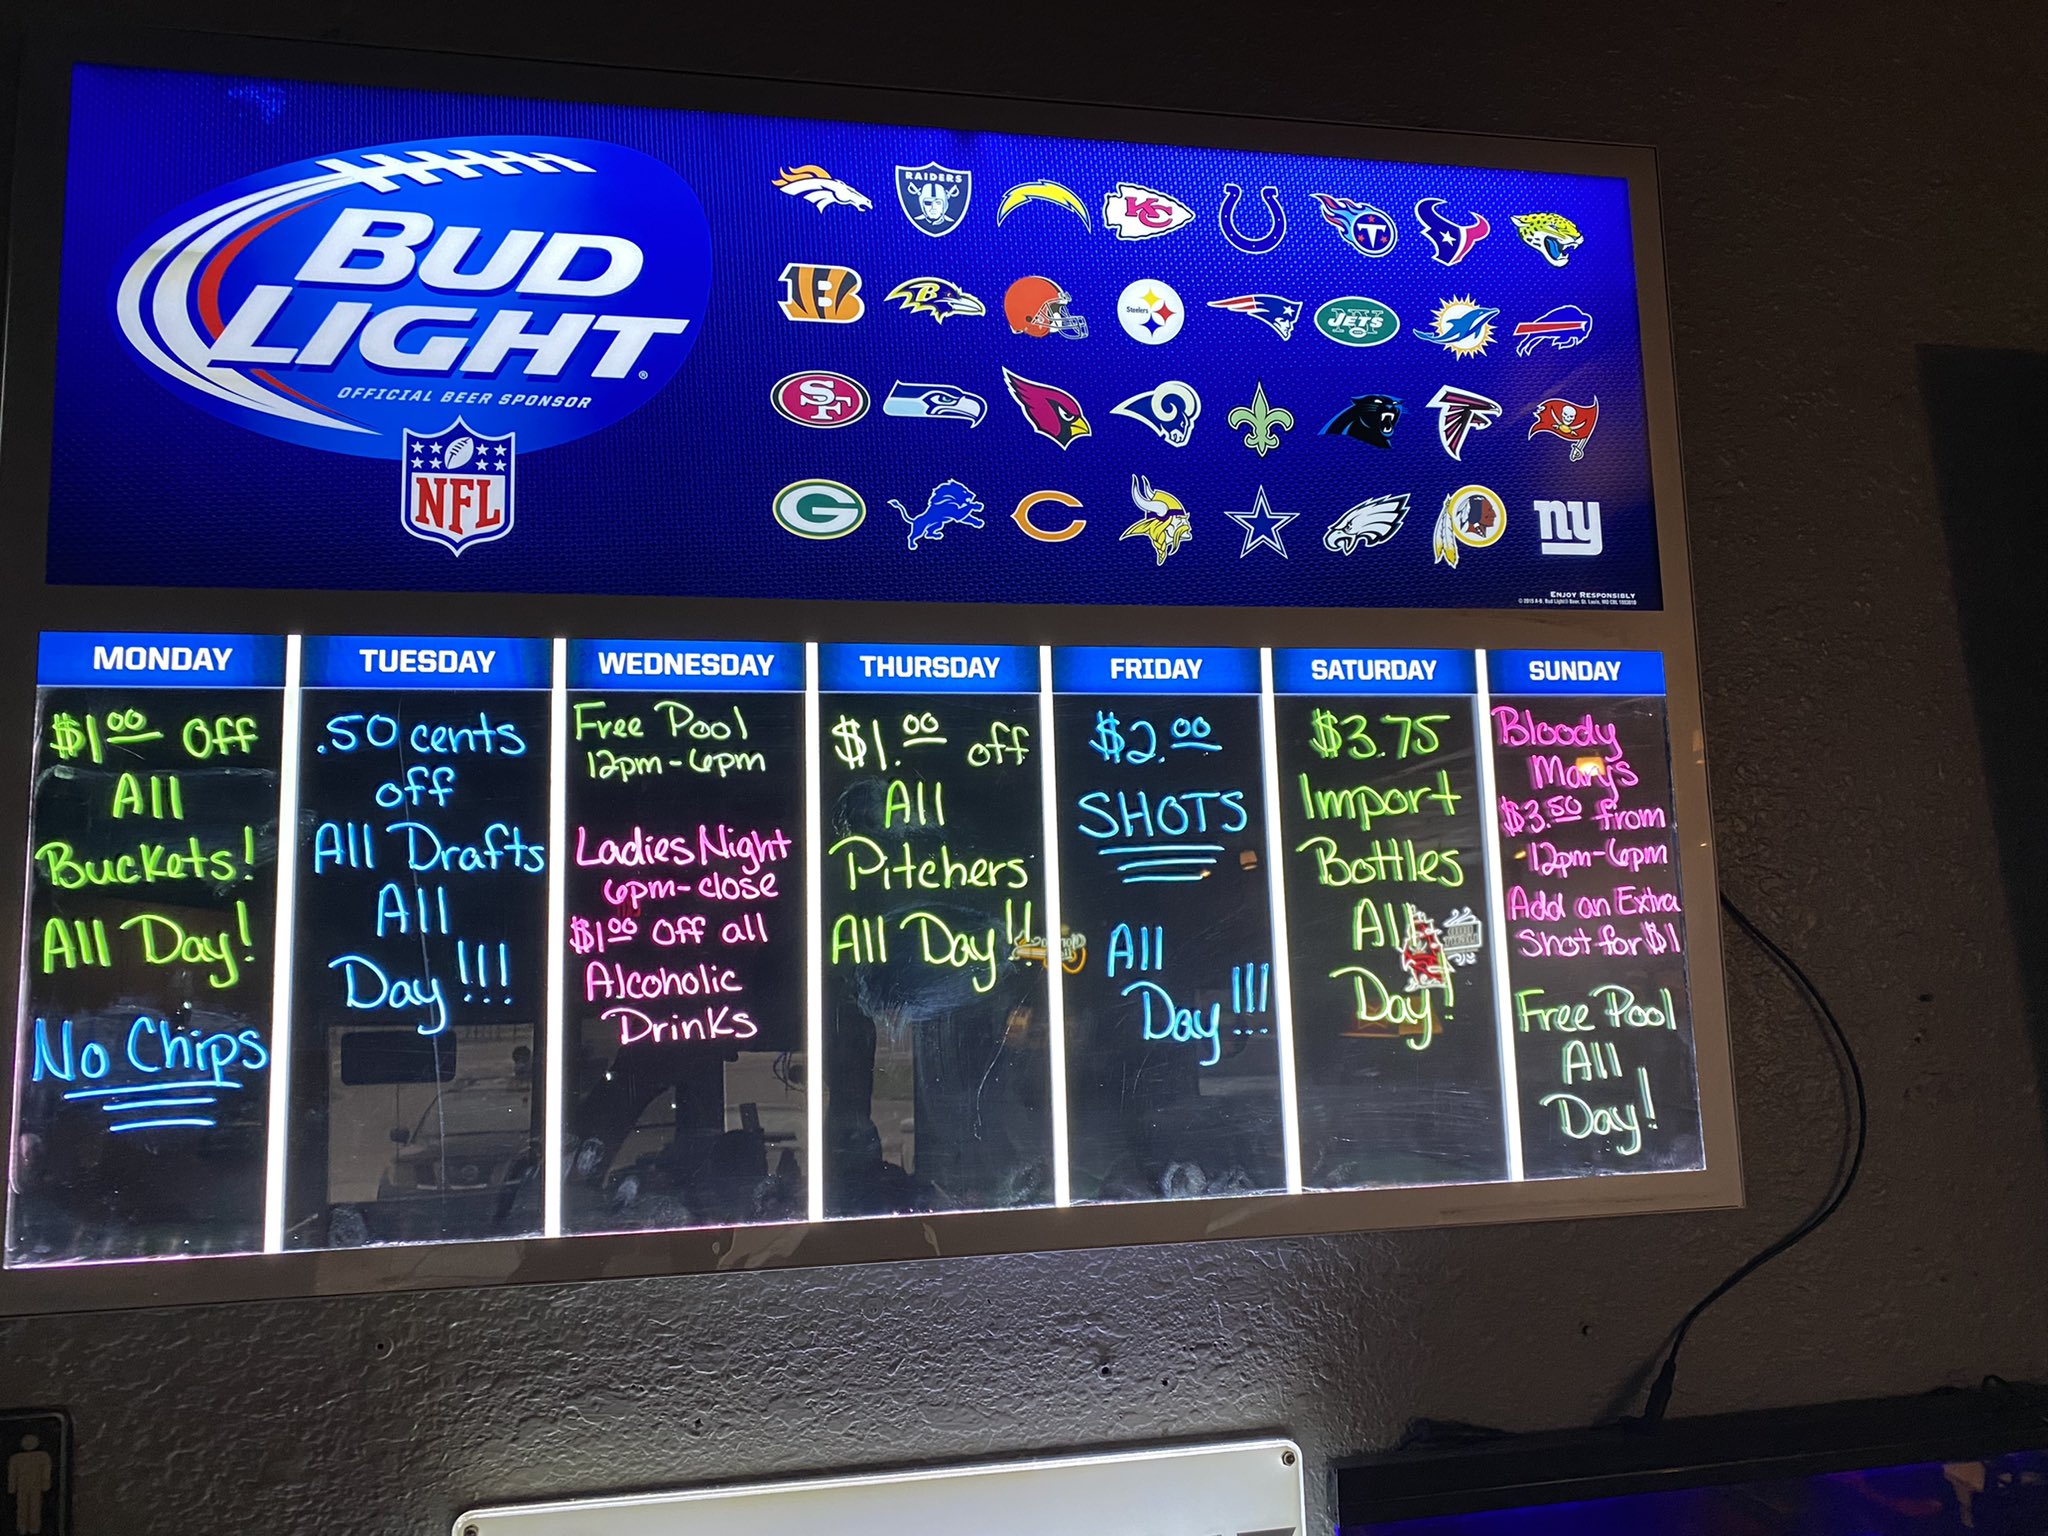 BUD
LIGHT
OFFICIAL BEER SPONSOR
NFL
RAIDERS
KC
T
B
B
Steelers
NY
JETS
SF
G
C
ny
ENJOY RESPONSIBLY
MONDAY
$1.00 Off
All
Buckets!
All Day!
No Chips
TUESDAY
.50 cents
off
All Drafts
All
Day!!!
WEDNESDAY
Free Pool
12pm-6pm
Ladies Night
6pm-close
$1.00 Off all
Alcoholic
Drinks
THURSDAY
$1.00 off
All
Pitchers
All Day!!
FRIDAY
$2.00
SHOTS
All
Day!!!
SATURDAY
$3.75
Import
Bottles
All
Day!
SUNDAY
Bloody
Mary's
$3.50 from
12pm-6pm
Add an Extra
Shot for $1
Free Pool
All
Day!